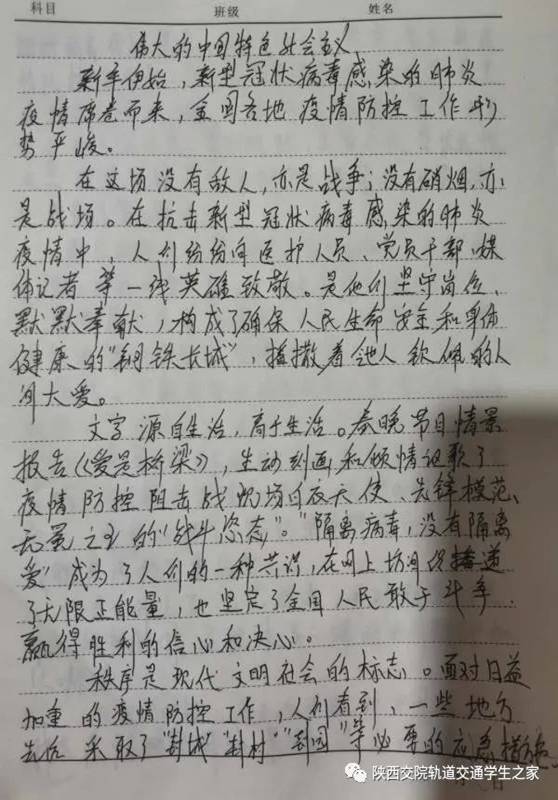 科目 班级 姓名
伟大的中国特色社会主义
新年伊始，新型冠状病毒感染的肺炎
疫情席卷而来，全国各地疫情防控工作形
势严峻。
在这场没有敌人，亦是战争；没有硝烟，亦
是战场。在抗击新型冠状病毒感染的肺炎
疫情中，人们纷纷向医护人员、党员干部、媒
体记者等一线英雄致敬。是他们坚守岗位、
默默奉献，构成了确保人民生命安全和身体
健康的“钢铁长城”，挥撒着他人钦佩的人
间大爱。
文字源自生活，高于生活。春晚节目情景
报告《爱是桥梁》，生动刻画和倾情讴歌了
疫情防控阻击战现场白衣天使、先锋模范、
无冕之王的“战斗姿态”。“隔离病毒，没有隔离
爱”成为了人们的一种共识，在网上坊间传播道
了无限正能量，也坚定了全国人民敢于斗争、
赢得胜利的信心和决心。
秩序是现代文明社会的标志。面对日益
加重的疫情防控工作，人们看到，一些地方
先后采取了“封城”“封村”“封园”等必要的应急措施。
陕西交院轨道交通学生之家